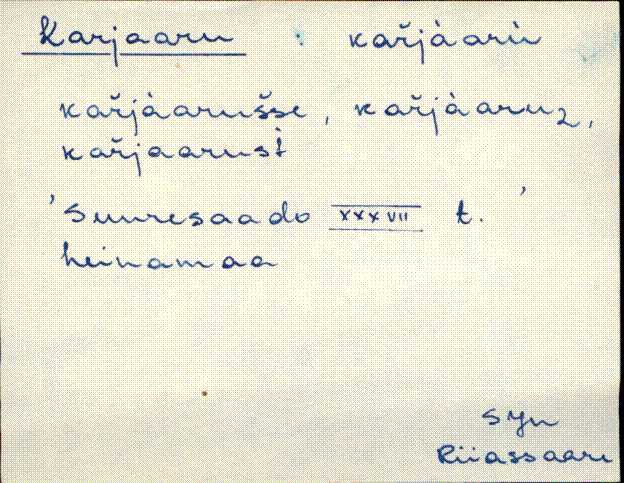 Karjaaru : kaŕjàarù
kaŕjàarušse, kaŕjàaruz,
kaŕjaarusṫ
'Suuresaado XXXVII t.'
heinamaa
Syn
Riiassaare